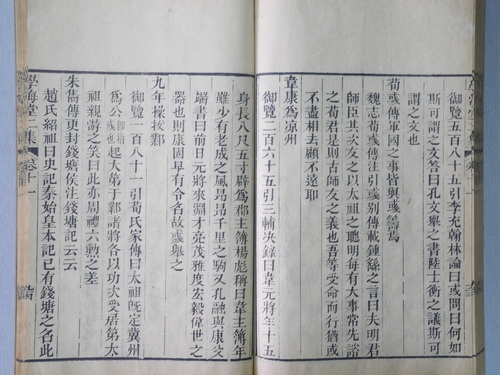 御覽五百八十五引李充翰林論曰或問曰何如
斯可謂之文答曰孔文舉之書陸士衡之議斯可
謂之文也
荀彧傳軍國之事皆與彧籌焉
魏志荀彧傳注引彧別傳載鍾繇之言曰夫明君
師臣其次友之以太祖之聰明每有大事常先諮
之荀君是則古師友之義也吾等受命而行猶或
不盡相去顧不遠耶
韋康為涼州
御覽二百六十五引三輔決錄曰韋元將年十五
身長八尺五寸辟為郡主簿楊彪稱曰韋主簿年
雖少有老成之風昂昂千里之駒又孔融與康父
端書曰前日元將來淵才亮茂雅度宏毅偉世之
器也則康固早有令名故彧舉之
九年操拔鄴
御覽一百八十一引荀氏家傳曰太祖既定冀州
為公起大第于鄴諸將各以功次受居第太
祖親游之笑曰此亦周禮六勲之差
朱雋傳更封錢塘侯注錢塘記云云
趙氏紹祖曰史記秦始皇本記已有錢塘之名此
學海堂二集
卷十一